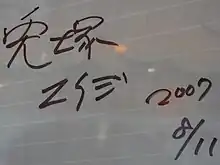 兎塚
エイジ
2007
8/11